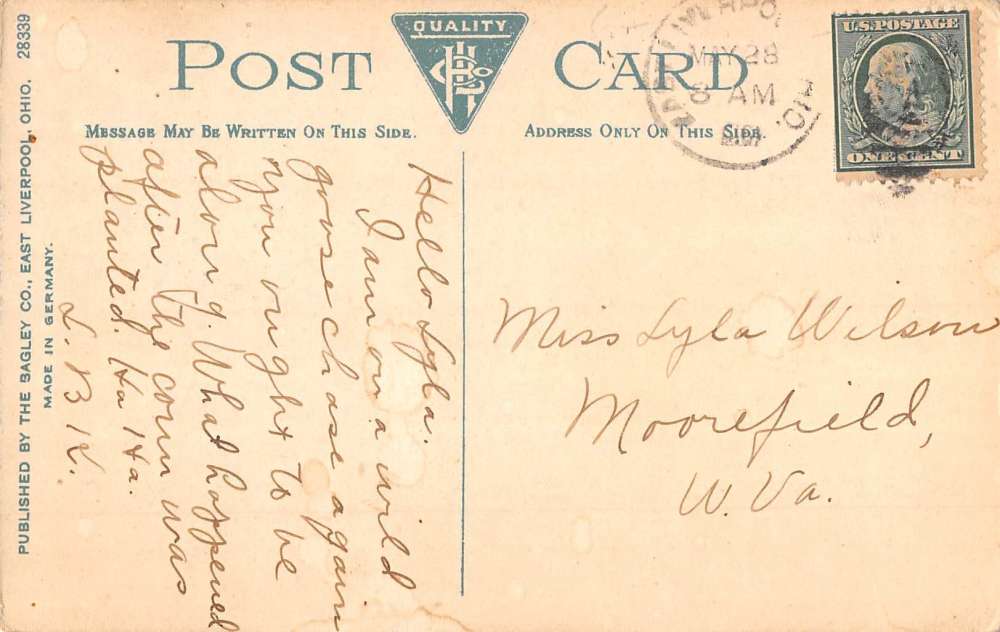 PUBLISHED BY THE BAGLEY CO., EAST LIVERPOOL, OHIO. 28339
MADE IN GERMANY.
POST CARD
QUALITY
MESSAGE MAY BE WRITTEN ON THIS SIDE.
ADDRESS ONLY ON THIS SIDE.
MAY 28
8 AM
U.S. POSTAGE
ONE CENT
Hello Lyla.
I am on a wild
goose chase again
you ought to be
along. What happened
after the corn was
planted. Ha Ha.
L. B. K.
Miss Lyla Wilson
Moorefield,
W. Va.